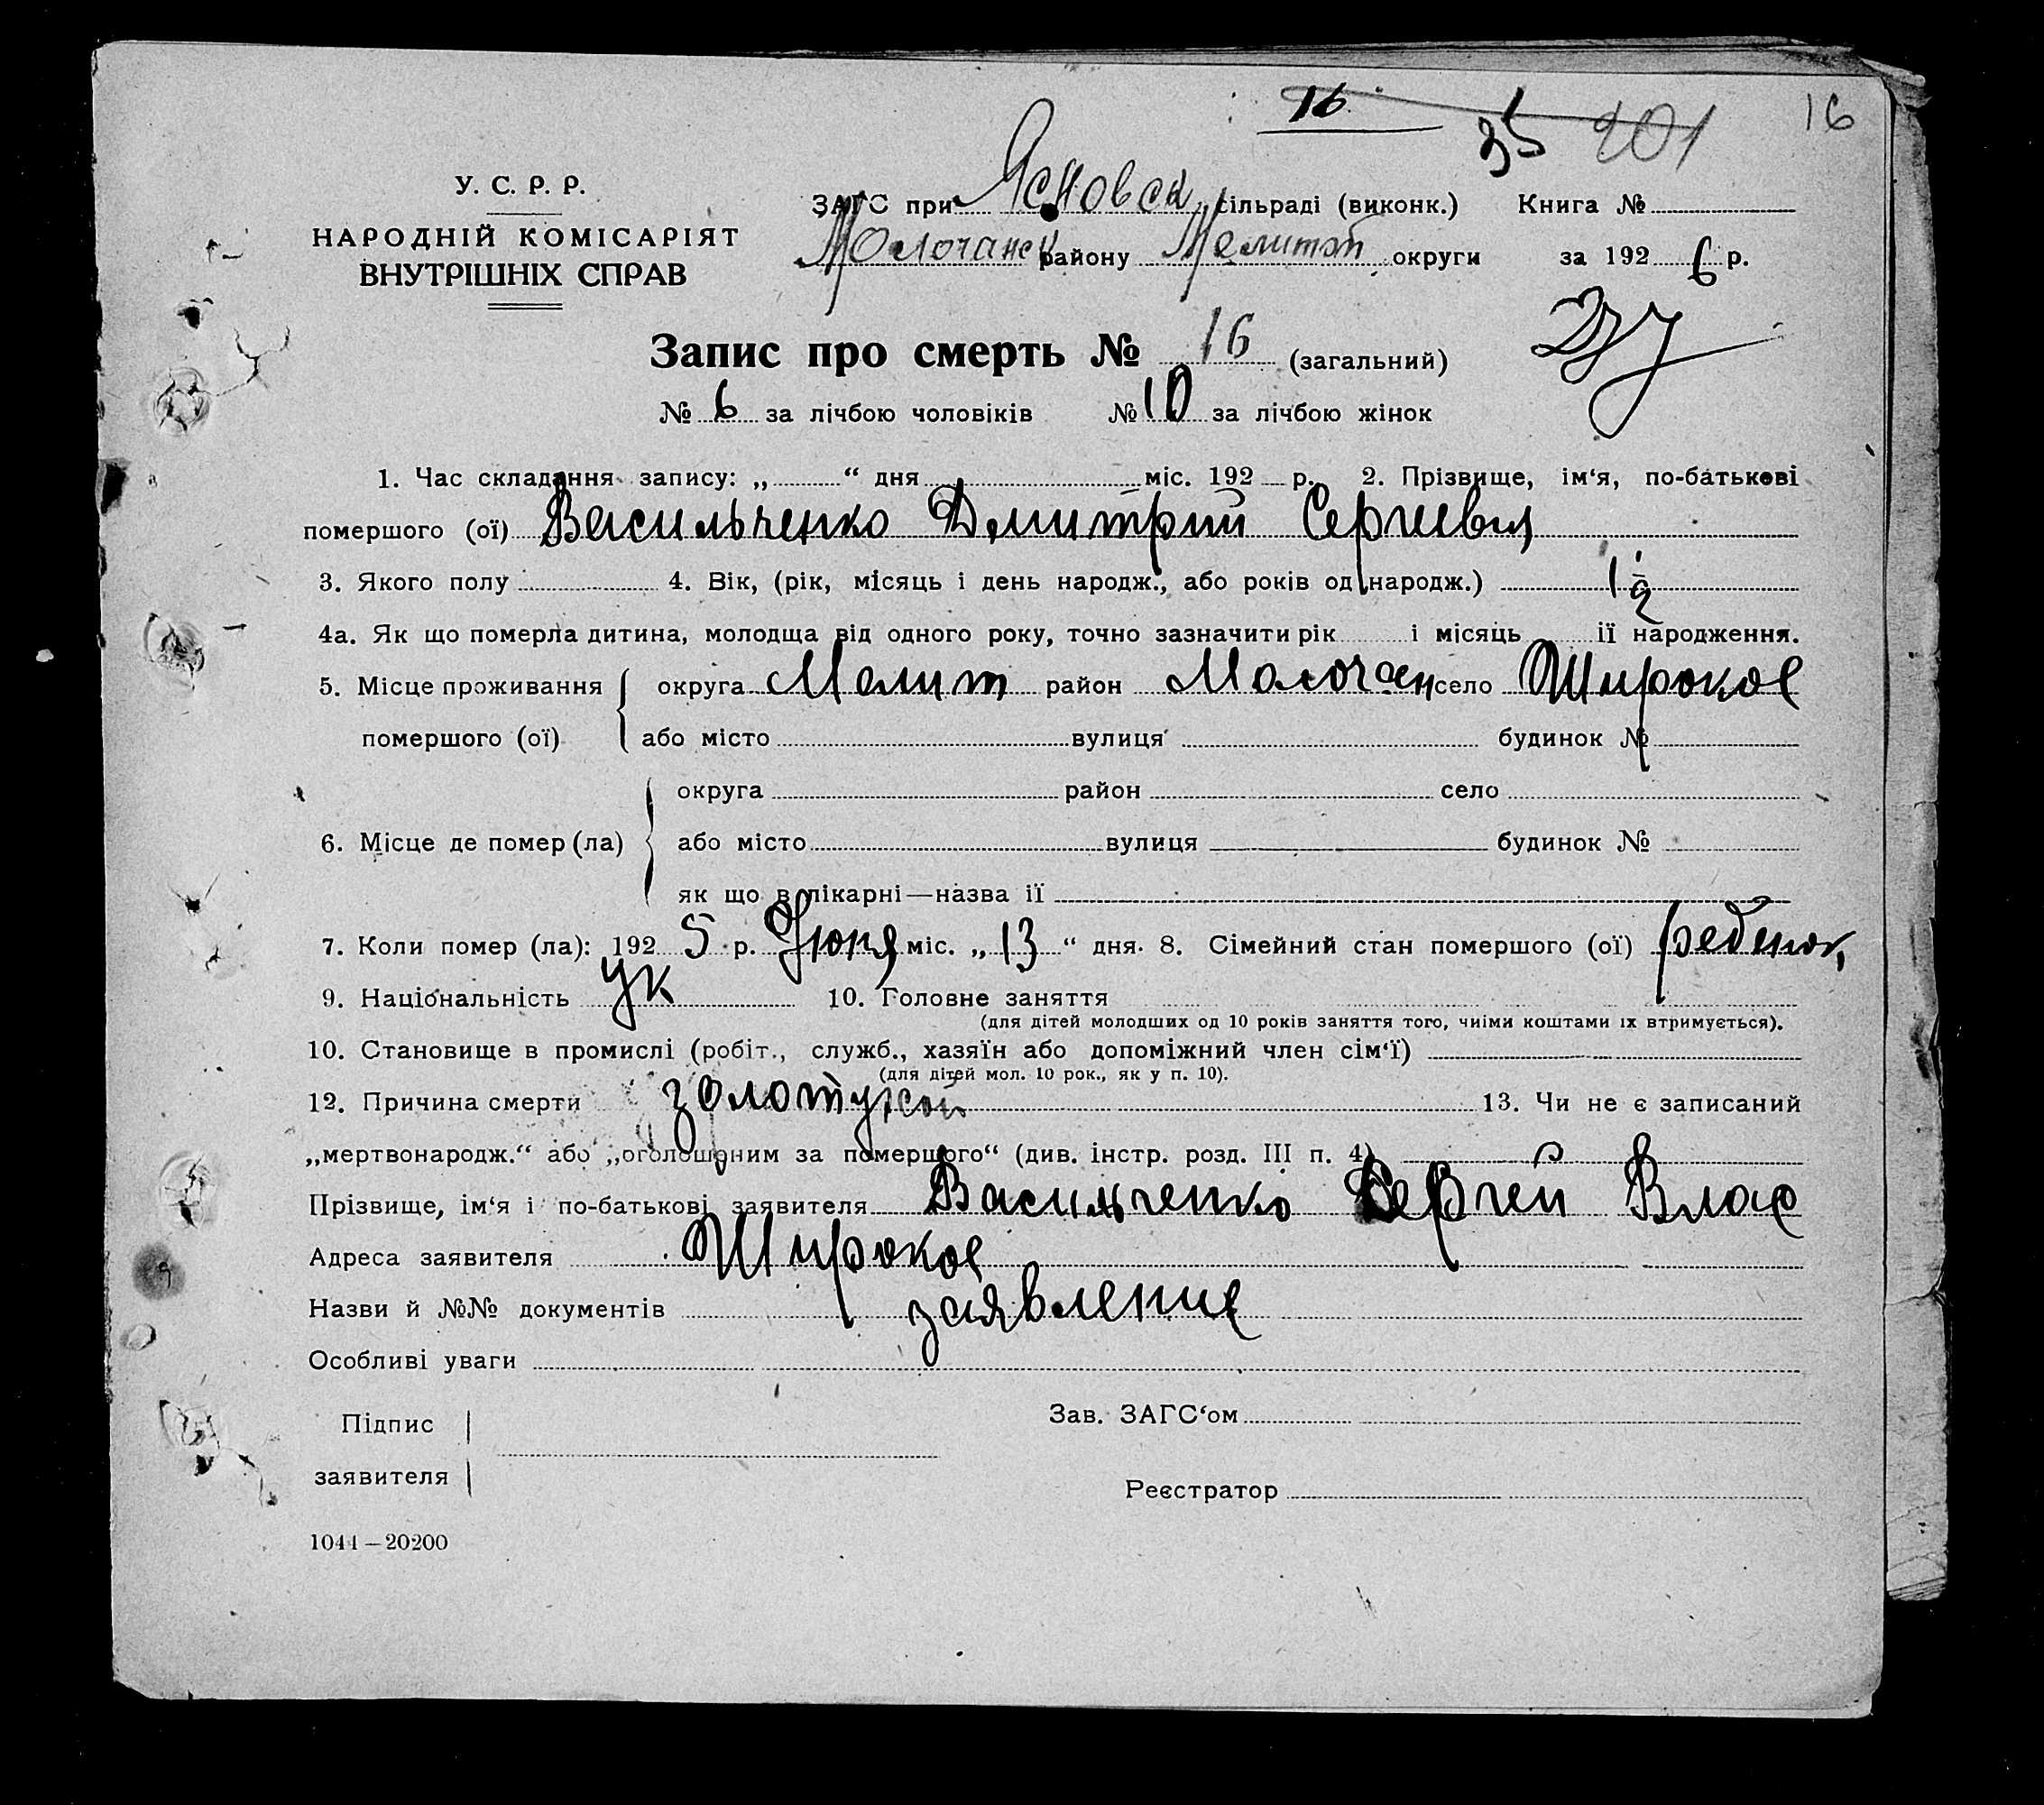 16 35 201 16
У. С. Р. Р.
НАРОДНІЙ КОМІСАРІЯТ
ВНУТРІШНІХ СПРАВ
ЗАГС при Ясновск сільраді (виконк.) Книга №
Молочанск району Мелитоп округи за 192 6 р.
Запис про смерть № 16 (загальний)
№ 6 за лічбою чоловіків № 10 за лічбою жінок
1. Час складання запису: „ “ дня міс. 192 р. 2. Прізвище, ім‘я, по-батькові
помершого (ої) Васильченко Дмитрий Сергиевич
3. Якого полу 4. Вік, (рік, місяць і день народж., або років од народж.) 1 1/2
4а. Як що померла дитина, молодща від одного року, точно зазначити рік і місяць ії народження.
5. Місце проживання помершого (ої) округа Мелит район Молочан село Широкое
або місто вулиця будинок №
6. Місце де помер (ла) округа район село
або місто вулиця будинок №
як що в лікарні—назва ії
7. Коли помер (ла): 192 5 р. Июня міс. „ 13 “ дня. 8. Сімейний стан помершого (ої) ребенок
9. Національність Ук 10. Головне заняття
(для дітей молодших од 10 років заняття того, чиіми коштами іх втримується).
10. Становище в промислі (робіт., служб., хазяїн або допоміжний член сім‘ї)
(для дітей мол. 10 рок., як у п. 10).
12. Причина смерти золотухой 13. Чи не є записаний
„мертвонародж.“ або „оголошеним за помершого“ (див. інстр. розд. III п. 4)
Прізвище, ім‘я і по-батькові заявителя Васильченко Сергей Влас
Адреса заявителя Широкое
Назви й №№ документів заявление
Особливі уваги
Підпис
заявителя
Зав. ЗАГС‘ом
Реєстратор
1044—20200